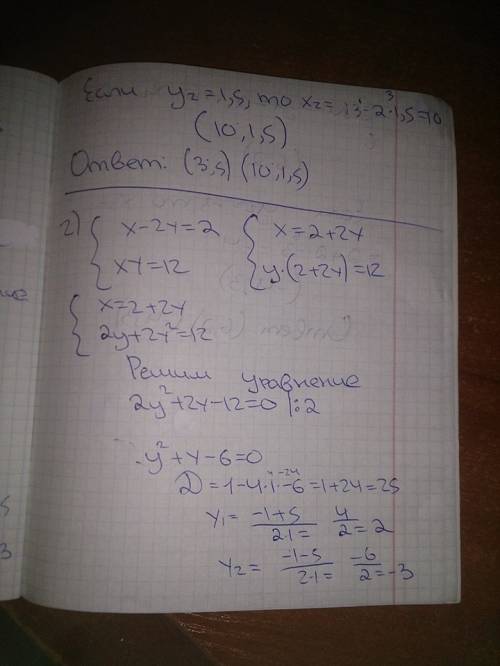 Если y₂=1,5, то x₂= 13-2·1,5=10
(10;1,5)
Ответ: (3;5) (10;1,5)
2) { x-2y=2 { x=2+2y
xy=12 y·(2+2y)=12
{ x=2+2y
2y+2y²=12
Решим уравнение
2y²+2y-12=0 |:2
y²+y-6=0
D=1-4·1·-6=1+24=25
y₁= -1+5/2·1= 4/2=2
y₂= -1-5/2·1= -6/2=-3